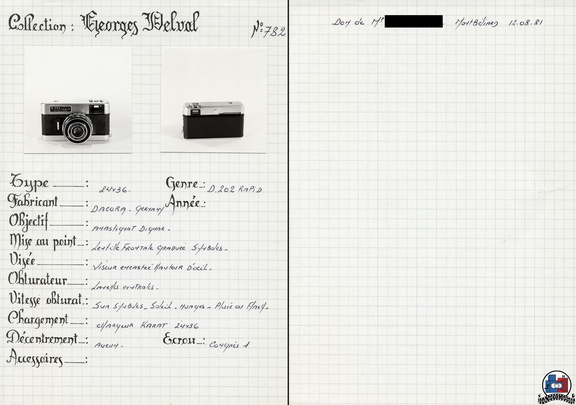 Collection : Georges Delval Nº:782
Type : 24x36. Genre : D.202 RAPID
Fabricant : DACORA - Germany Année :
Objectif : Anastigmat Dignar -
Mise au point : Lentille Frontale graduée Symboles -
Visée : Viseur encastré Hauteur d'oeil -
Obturateur : Lamelles centrales -
Vitesse obturat : Sur Symboles - Soleil - nuages - Pluie ou Flash -
Chargement : chargeur KARAT 24x36
Décentrement : Aucun - Ecrou : Congrès 1
Accessoires :
Don de Mr 12.08.81